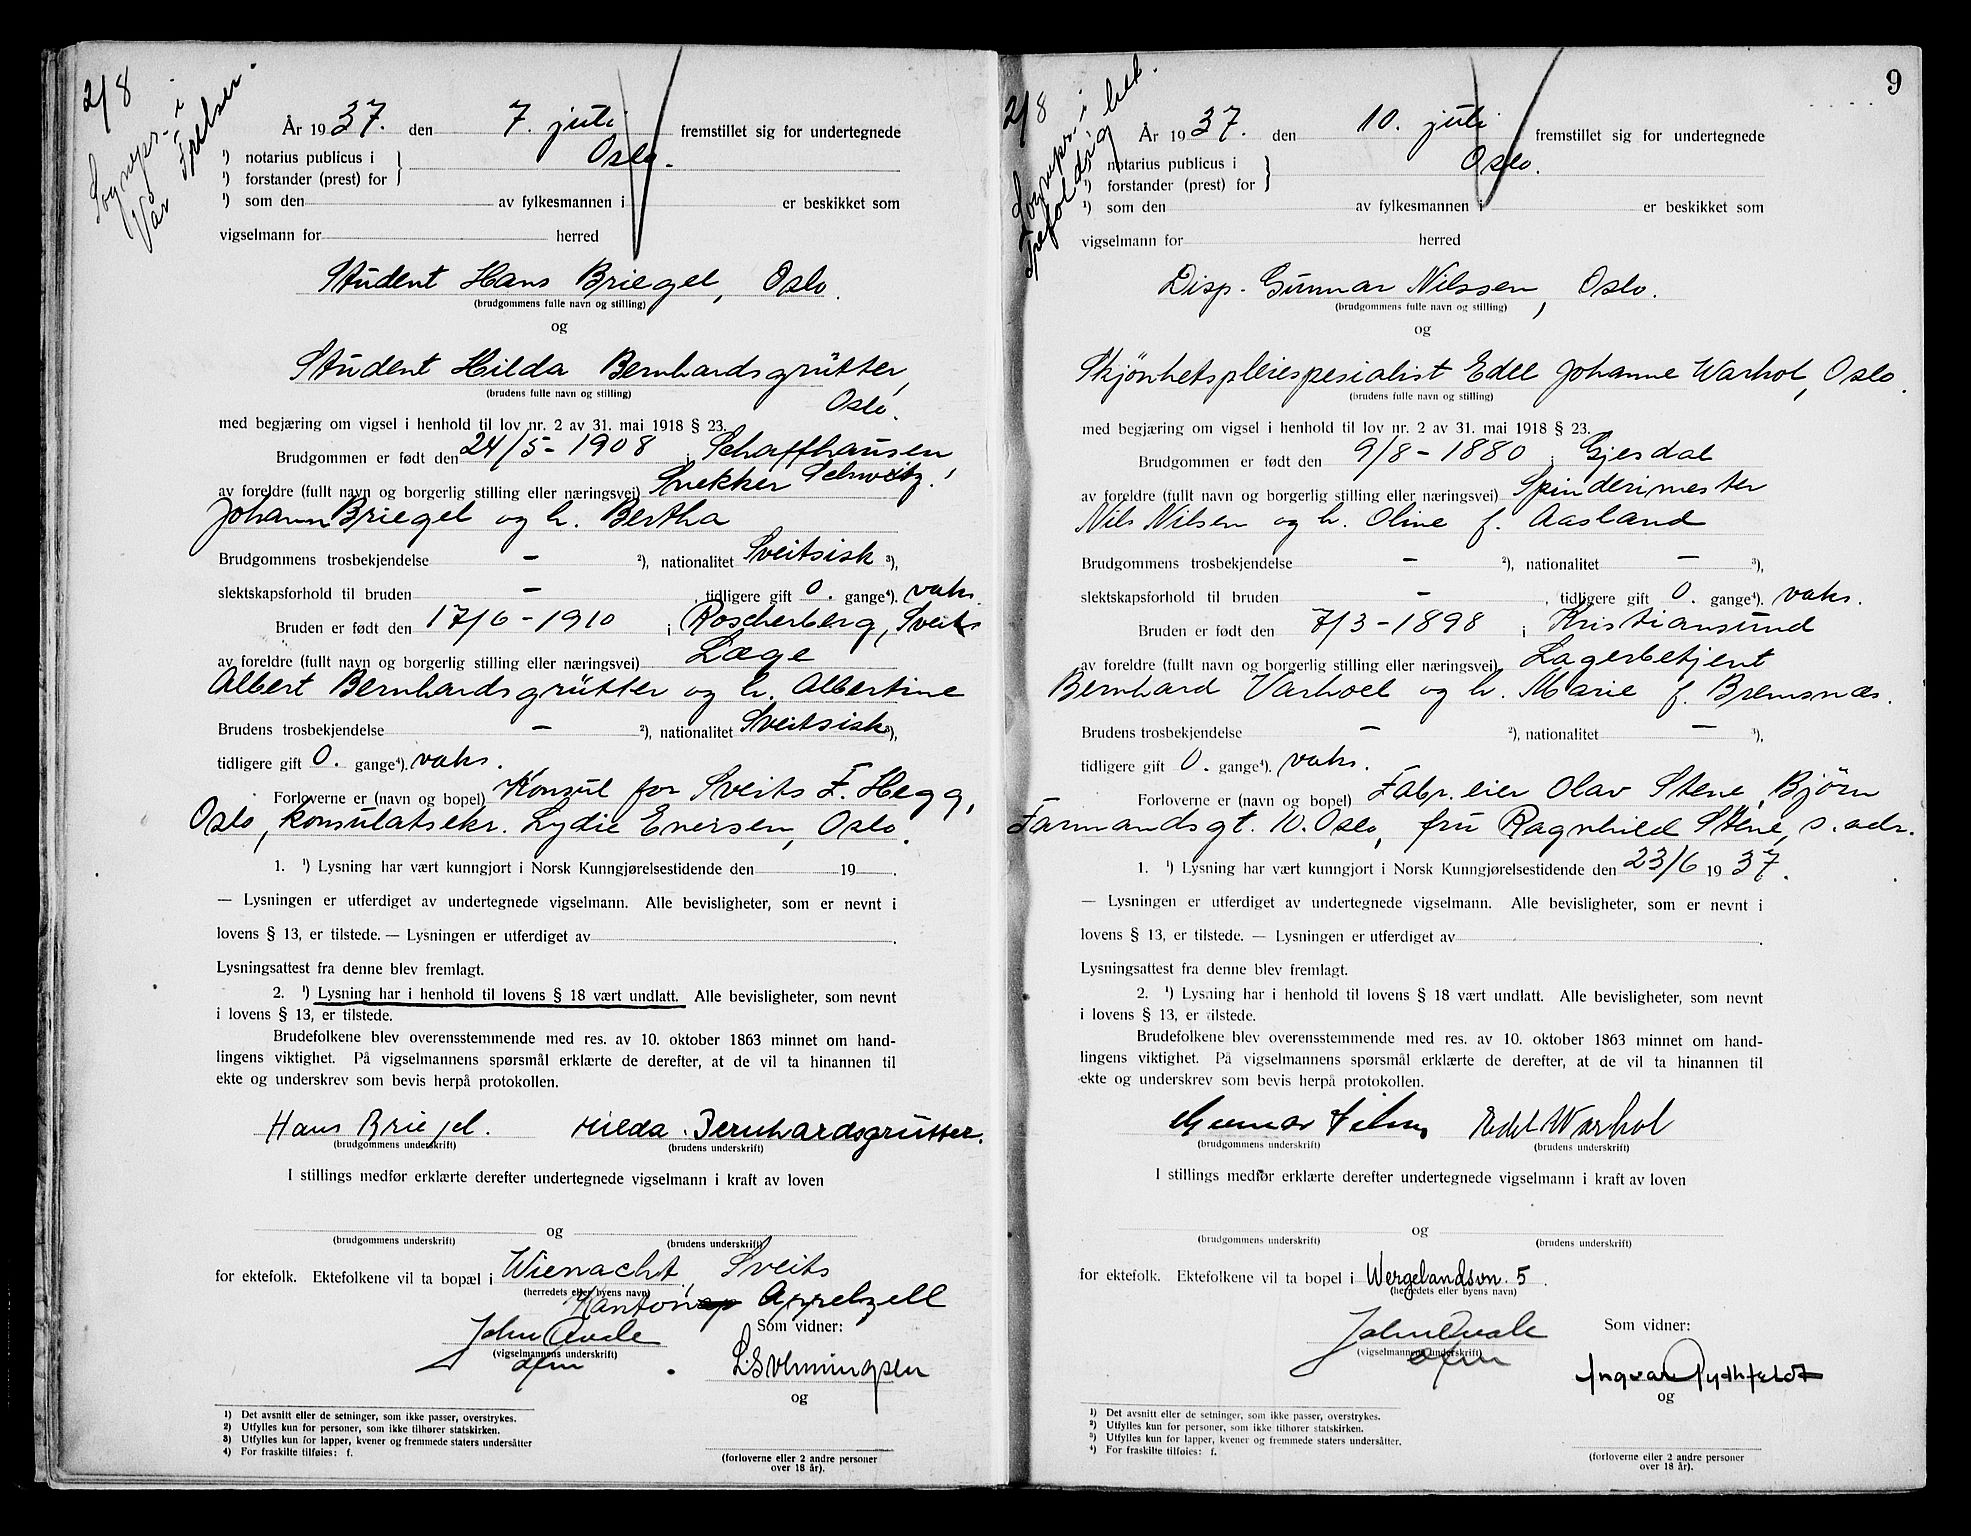 2/8
Sogneps. i
Vår Frelser.
År 1937. den 7. juli fremstillet sig for undertegnede
¹) notarius publicus i } Oslo.
¹) forstander (prest) for
¹) som den av fylkesmannen i er beskikket som
vigselmann for herred
Student Hans Briegel, Oslo.
(brudgommens fulle navn og stilling)
og
Student Hilda Bernhardsgrütter,
(brudens fulle navn og stilling)
Oslo.
med begjæring om vigsel i henhold til lov nr. 2 av 31. mai 1918 § 23.
Brudgommen er født den 24/5 - 1908 i Schaffhausen
av foreldre (fullt navn og borgerlig stilling eller næringsvei) Snekker Schweitz.
Johann Briegel og h. Bertha
Brudgommens trosbekjendelse - ²), nationalitet Sveitsisk ³),
slektskapsforhold til bruden - , tidligere gift 0. gange⁴). vaks.
Bruden er født den 17/6 - 1910 i Roscherberg, Sveits
av foreldre (fullt navn og borgerlig stilling eller næringsvei) Læge
Albert Bernhardsgrütter og h. Albertine
Brudens trosbekjendelse - ²), nationalitet Sveitsisk ³),
tidligere gift 0. gange⁴). vaks.
Forloverne er (navn og bopel) Konsul for Sveits F. Hegg,
Oslo, konsulatsekr. Lydie Eversen, Oslo.
1. ¹) Lysning har vært kunngjort i Norsk Kunngjørelsestidende den 19 .
— Lysningen er utferdiget av undertegnede vigselmann. Alle bevisligheter, som er nevnt i
lovens § 13, er tilstede. — Lysningen er utferdiget av .
Lysningsattest fra denne blev fremlagt.
2. ¹) Lysning har i henhold til lovens § 18 vært undlatt. Alle bevisligheter, som nevnt
i lovens § 13, er tilstede.
Brudefolkene blev overensstemmende med res. av 10. oktober 1863 minnet om hand-
lingens viktighet. På vigselmannens spørsmål erklærte de derefter, at de vil ta hinannen til
ekte og underskrev som bevis herpå protokollen.
Hans Briegel. Hilda Bernhardsgrütter.
(brudgommens underskrift) (brudens underskrift)
I stillings medfør erklærte derefter undertegnede vigselmann i kraft av loven
og
(brudgommens underskrift) (brudens underskrift)
for ektefolk. Ektefolkene vil ta bopæl i Wienacht, Sveits
(herredets eller byens navn)
Kanton Appelzell
John Qvale Som vidner:
(vigselmannens underskrift)
og
¹) Det avsnitt eller de setninger, som ikke passer, overstrykes.
²) Utfylles kun for personer, som ikke tilhører statskirken.
³) Utfylles kun for lapper, kvener og fremmede staters undersåtter
⁴) For fraskilte tilføies: f.
(forloverne eller 2 andre personer
over 18 år).
9
2/8
Sogneps. i
Trefoldighet.
År 1937. den 10. juli fremstillet sig for undertegnede
¹) notarius publicus i } Oslo.
¹) forstander (prest) for
¹) som den av fylkesmannen i er beskikket som
vigselmann for herred
Disp. Gunnar Nilssen, Oslo.
(brudgommens fulle navn og stilling)
og
Skjønhetspleiespesialist Edel Johanne Warhol, Oslo.
(brudens fulle navn og stilling)
med begjæring om vigsel i henhold til lov nr. 2 av 31. mai 1918 § 23.
Brudgommen er født den 9/8 - 1880 i Gjesdal
av foreldre (fullt navn og borgerlig stilling eller næringsvei) Spinderimester
Nils Nilsen og h. Oline f. Aasland
Brudgommens trosbekjendelse - ²), nationalitet - ³),
slektskapsforhold til bruden - , tidligere gift 0. gange⁴). vaks.
Bruden er født den 7/3 - 1898 i Kristiansund
av foreldre (fullt navn og borgerlig stilling eller næringsvei) Lagerbetjent
Bernhard Varhoel og h. Marie f. Bremsnæs.
Brudens trosbekjendelse - ²), nationalitet - ³),
tidligere gift 0. gange⁴). vaks.
Forloverne er (navn og bopel) Fabr.eier Olav Stene, Bjørn
Farmandsgt. 10. Oslo, fru Ragnhild Stene, s. adr.
1. ¹) Lysning har vært kunngjort i Norsk Kunngjørelsestidende den 23/6 1937.
— Lysningen er utferdiget av undertegnede vigselmann. Alle bevisligheter, som er nevnt i
lovens § 13, er tilstede. — Lysningen er utferdiget av .
Lysningsattest fra denne blev fremlagt.
2. ¹) Lysning har i henhold til lovens § 18 vært undlatt. Alle bevisligheter, som nevnt
i lovens § 13, er tilstede.
Brudefolkene blev overensstemmende med res. av 10. oktober 1863 minnet om hand-
lingens viktighet. På vigselmannens spørsmål erklærte de derefter, at de vil ta hinannen til
ekte og underskrev som bevis herpå protokollen.
Gunnar Nilssen Edel Warhol
(brudgommens underskrift) (brudens underskrift)
I stillings medfør erklærte derefter undertegnede vigselmann i kraft av loven
og
(brudgommens underskrift) (brudens underskrift)
for ektefolk. Ektefolkene vil ta bopel i Wergelandsvn. 5.
(herredets eller byens navn)
John Qvale Som vidner:
(vigselmannens underskrift)
Ingvar Rydhfeldt
og
¹) Det avsnitt eller de setninger, som ikke passer, overstrykes.
²) Utfylles kun for personer, som ikke tilhører statskirken.
³) Utfylles kun for lapper, kvener og fremmede staters undersåtter.
⁴) For fraskilte tilføies: f.
(forloverne eller 2 andre personer
over 18 år).